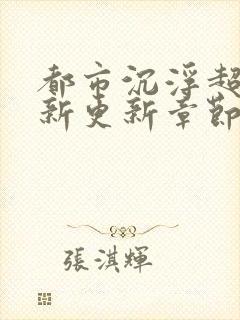 都市沉浮超
新更新章節
張淇輝